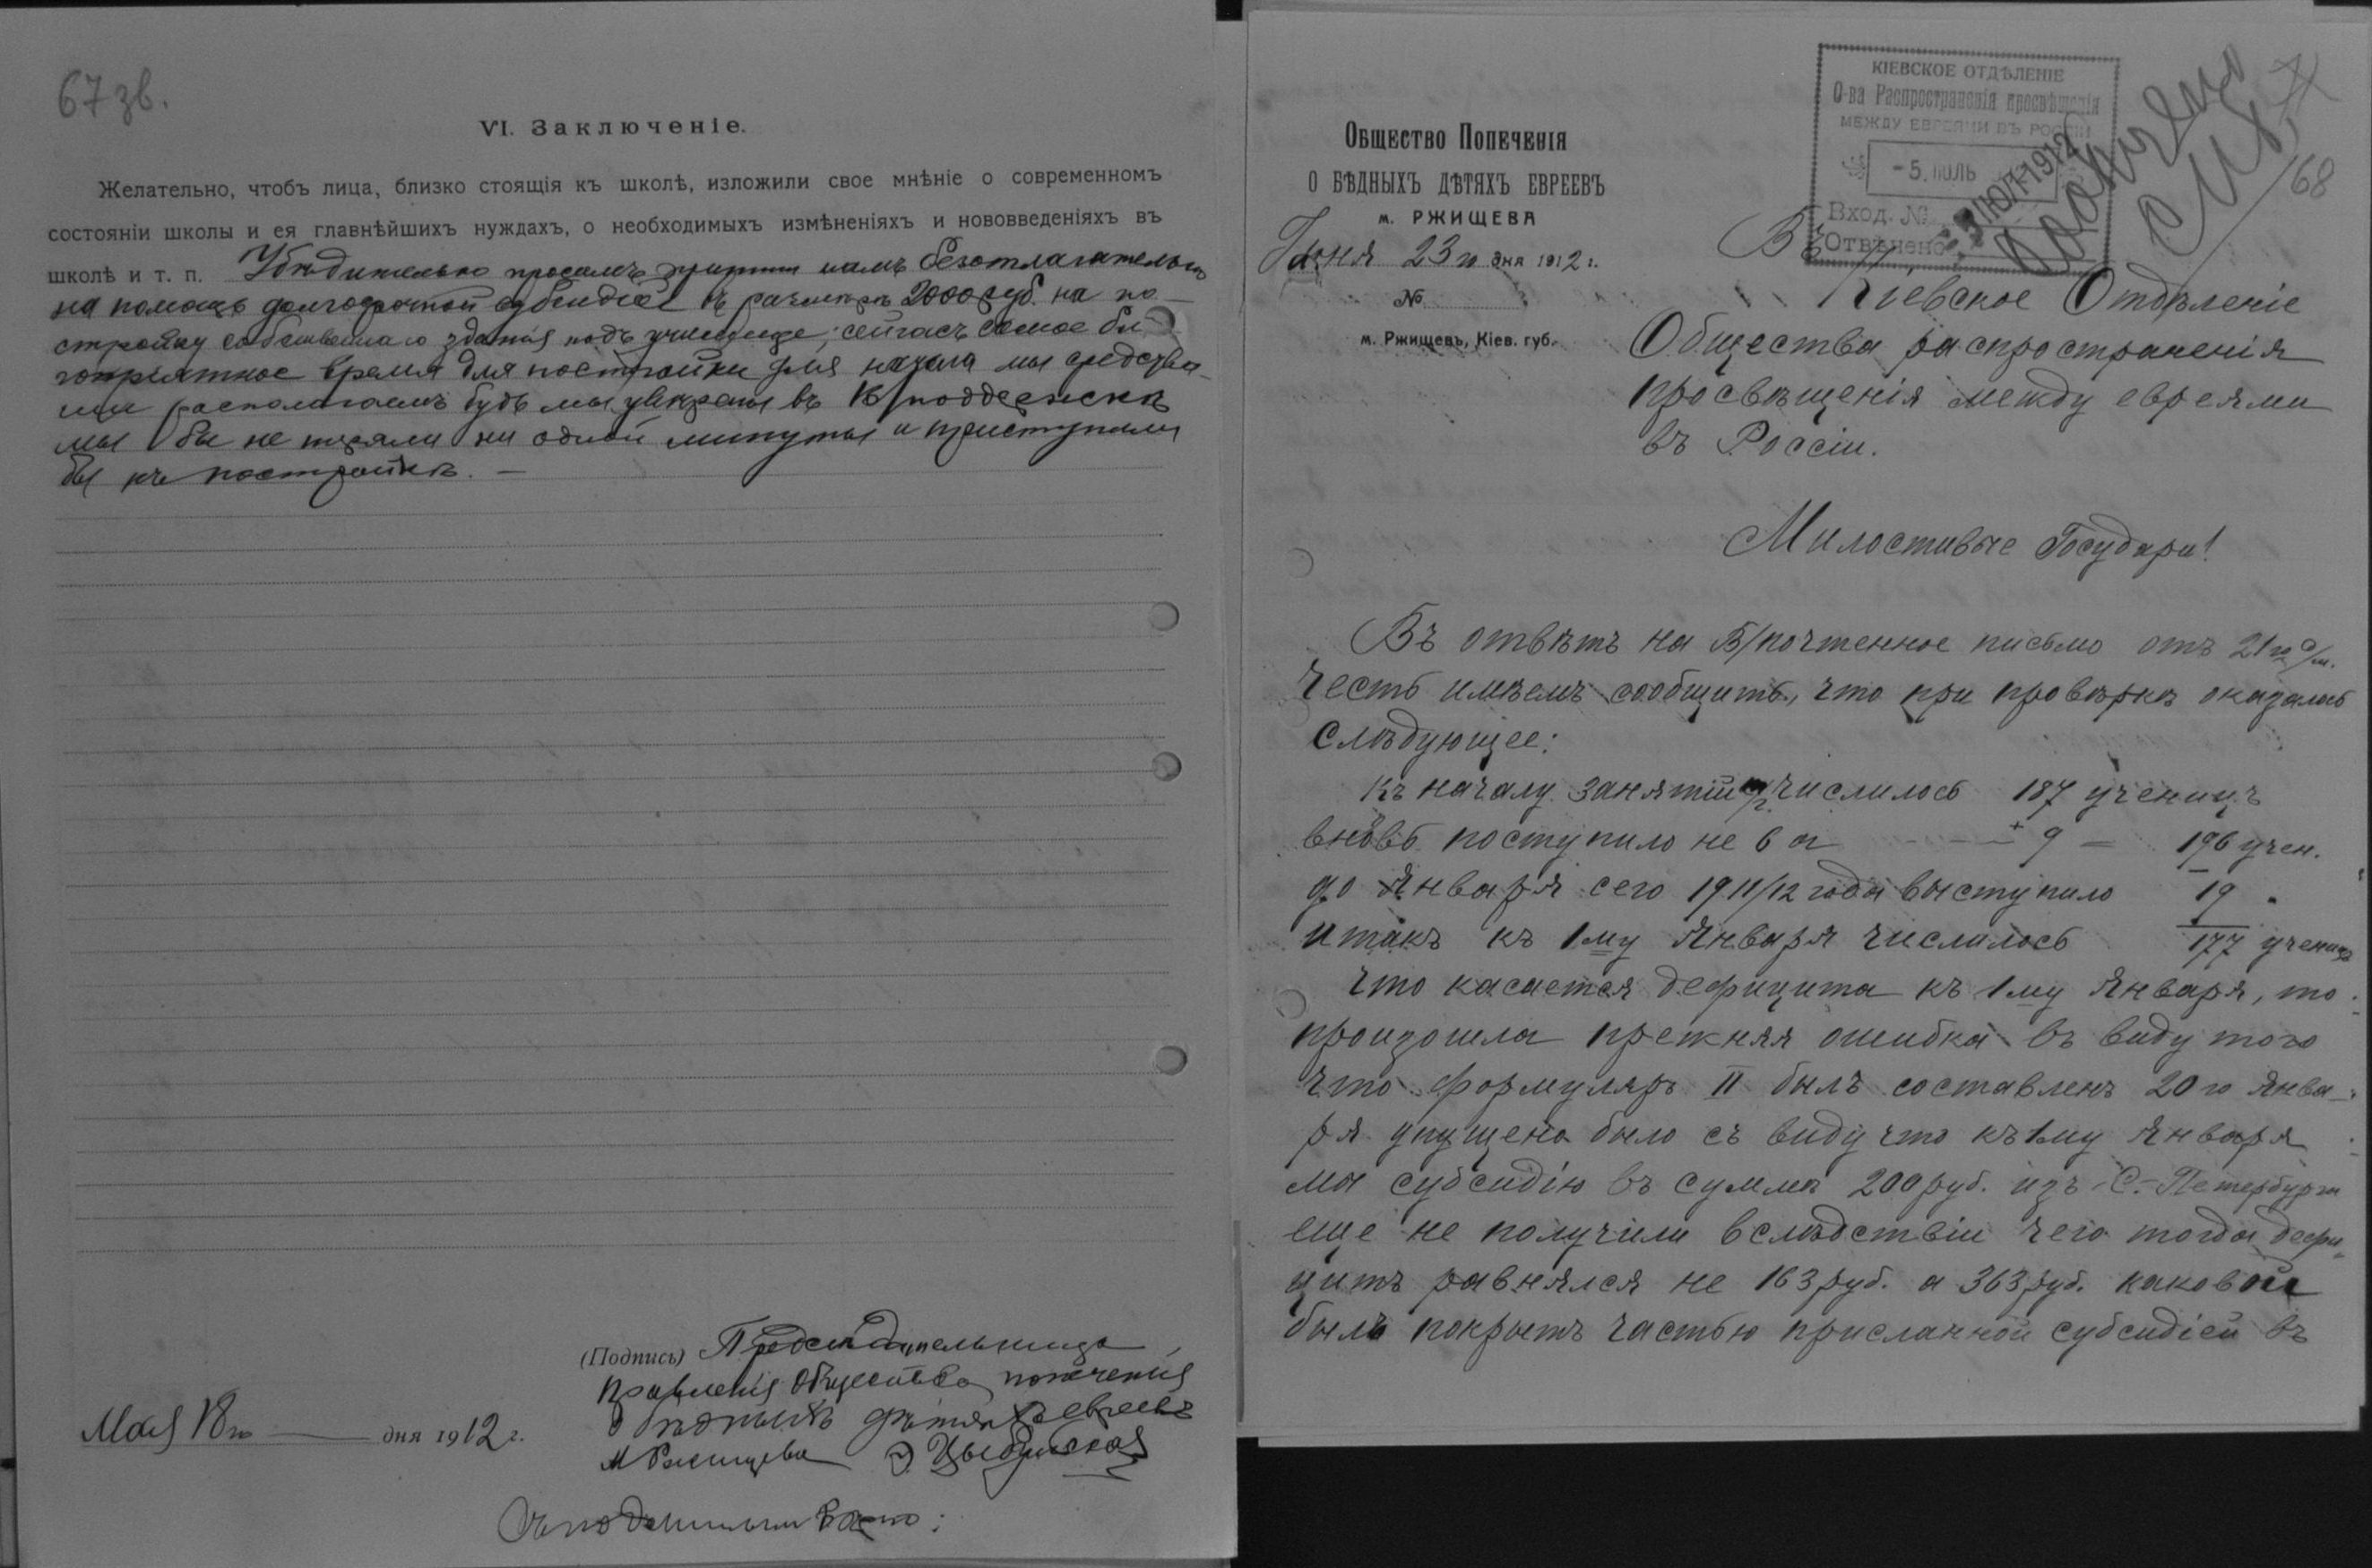 67 зв.
VI. Заключеніе.
Желательно, чтобъ лица, близко стоящія къ школѣ, изложили свое мнѣніе о современномъ
состояніи школы и ея главнѣйшихъ нуждахъ, о необходимыхъ измѣненіяхъ и нововведеніяхъ въ
школѣ и т. п. Убѣдительно просимъ прійти намъ безотлагательно
на помощь долгосрочной субсидіей въ размѣрѣ 2000 руб. на по-
стройку собственнаго зданія подъ училище; сейчасъ самое бла-
гопріятное время для постройки для начала мы средства-
ми располагаемъ будь мы увѣрены въ В/поддержкѣ
мы бы не теряли ни одной минуты и приступили
бы къ постройкѣ. —
(Подпись) Предсѣдательница
Правленія Общества попеченія
о бѣдныхъ дѣтяхъ евреевъ
м Ржищева Э. Цыбульская
Мая 18го дня 1912 г.
Съ подлиннымъ вѣрно:
КІЕВСКОЕ ОТДѢЛЕНІЕ
О-ва Распространенія просвѣщенія
МЕЖДУ ЕВРЕЯМИ ВЪ РОССІИ
-5. ІЮЛЬ
Вход. №
Отвѣчено
5 ІЮЛ 1912
68
Общество Попеченія
о бѣдныхъ дѣтяхъ евреевъ
м. РЖИЩЕВА
23го дня 1912 г.
№
м. Ржищевъ, Кіев. губ.
Въ
Кіевское Отдѣленіе
Общества распространенія
просвѣщенія между евреями
въ Россіи.
Милостивые Государи!
Въ отвѣтъ на В/почтенное письмо отъ 21го с/м.
честь имѣемъ сообщить, что при провѣркѣ оказалось
слѣдующее:
Къ началу занятій числилось 187 ученицъ
вновь поступило + 9 — 196 учен.
до Января сего 1911/12 года выступило 19 "
итакъ къ 1му Января числилось 177 ученицъ
Что касается дефицита къ 1му Января, то
произошла прежняя ошибка въ виду того
что формуляръ II былъ составленъ 20го Янва-
ря упущено было съ виду что къ 1му Января
мы субсидію въ суммѣ 200 руб. изъ С.-Петербурга
еще не получили вслѣдствіи чего тогда дефи-
цитъ равнялся не 163 руб. а 363 руб. каковой
былъ покрытъ частью присланной субсидіей въ